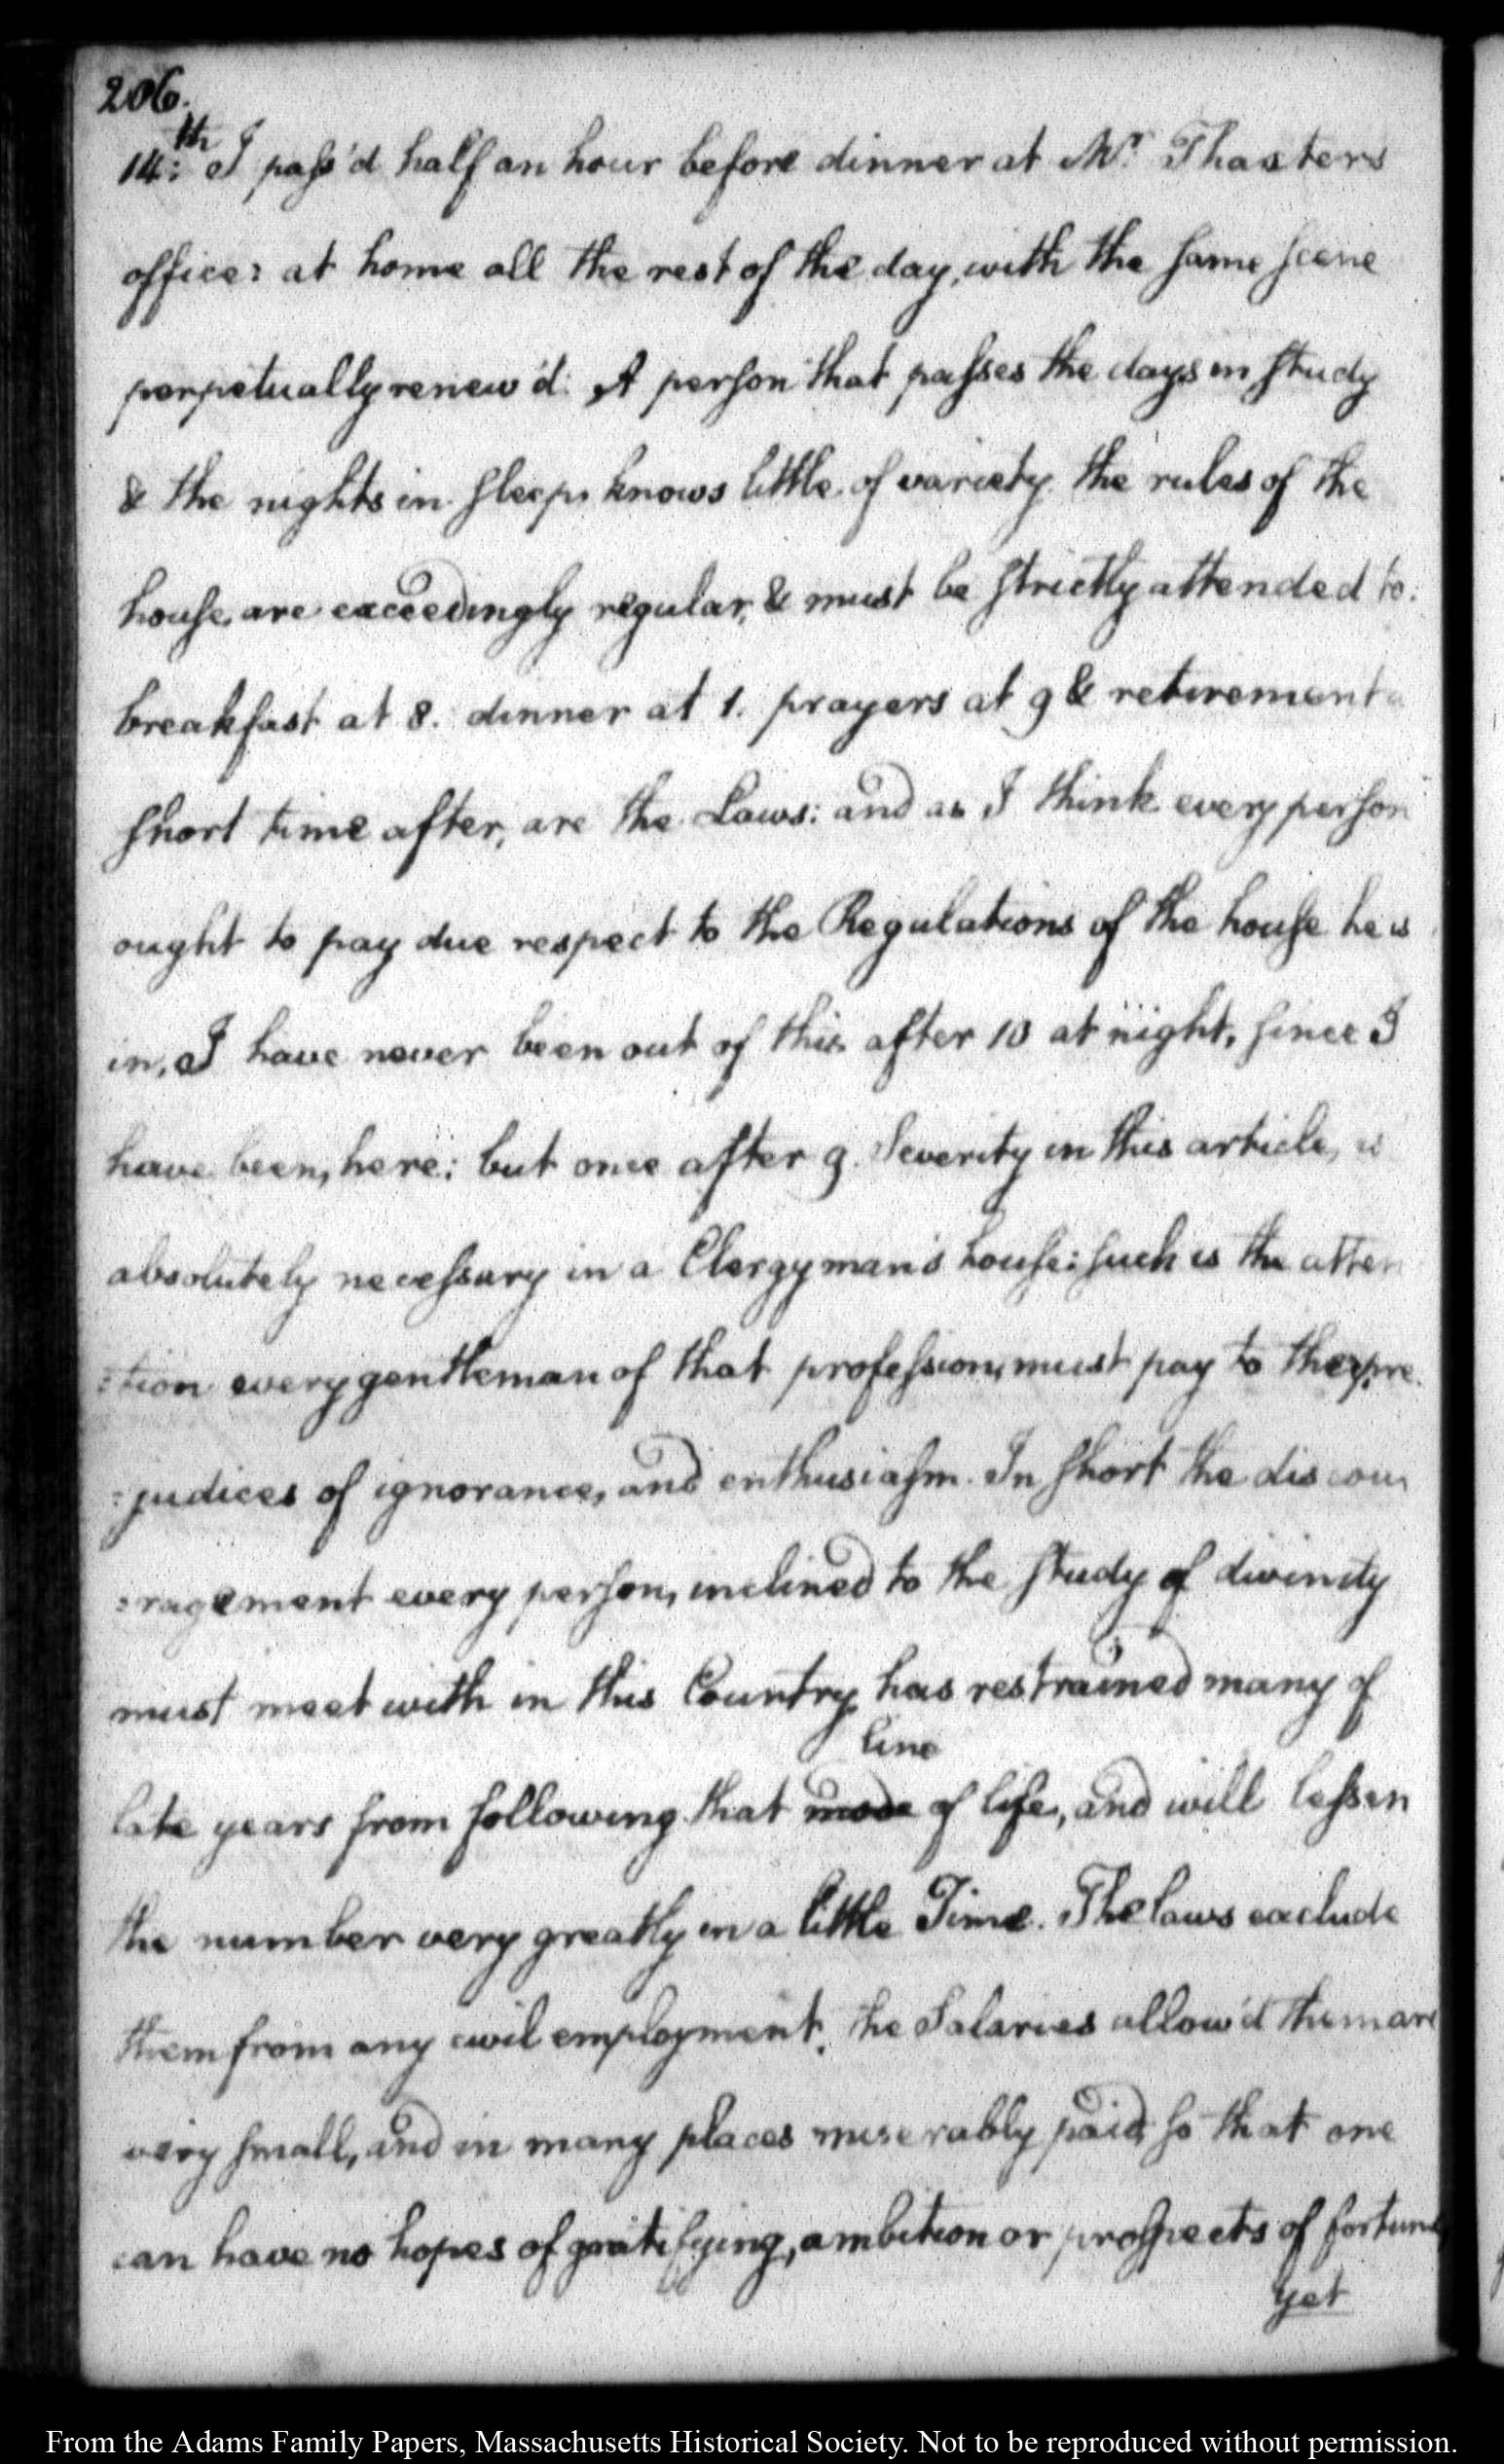 206.
14:th I pass'd half an hour before dinner at Mr. Thaxters
office: at home all the rest of the day, with the same scene
perpetually renew'd. A person that passes the days in study
& the nights in sleep, knows little of variety the rules of the
house, are exceedingly regular, & must be strictly attended to:
breakfast at 8. dinner at 1. prayers at 9 & retirement a
short time after, are the Laws: and as I think every person
ought to pay due respect to the Regulations of the house he is
in, I have never been out of this after 10 at night, since I
have been, here: but once after 9. Severity in this article, is
absolutely necessary in a Clergyman's house: such is the atten
:tion every gentleman of that profession, must pay to the pre
:judices of ignorance, and enthusiasm. In short the discou
:ragement every person, inclined to the study of divinity
must meet with in this Country, has restrained many of
line
late years from following that mode of life, and will lessen
the number very greatly in a little Time. The laws exclude
them from any civil employment. the Salaries allow'd them are
very small, and in many places miserably paid, so that one
can have no hopes of gratifying, ambition or prospects of fortune,
yet
From the Adams Family Papers, Massachusetts Historical Society. Not to be reproduced without permission.